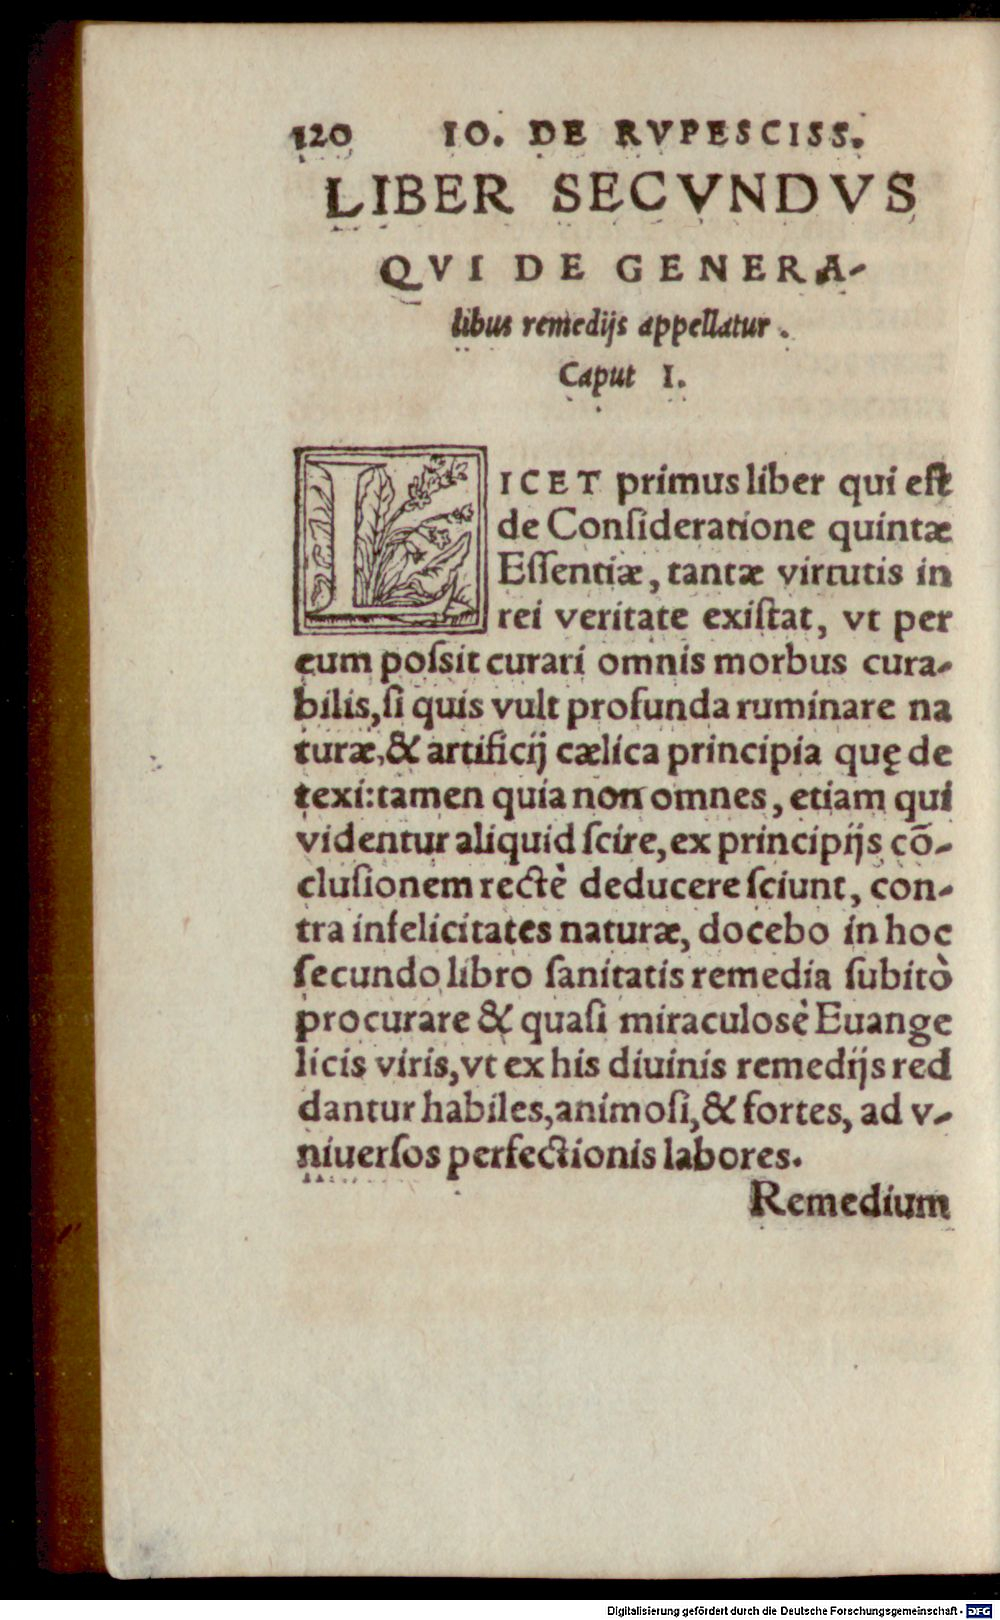 120 IO. DE RVPESCISS.
LIBER SECVNDVS
QVI DE GENERA-
libus remedijs appellatur.
Caput I.
LICET primus liber qui eſt
de Conſideratione quintæ
Eſſentiæ, tantæ virtutis in
rei veritate exiſtat, vt per
eum poſsit curari omnis morbus cura-
bilis, ſi quis vult profunda ruminare na
turæ, & artificij cælica principia quę de
texi: tamen quia non omnes, etiam qui
videntur aliquid ſcire, ex principijs cō-
cluſionem rectè deducere ſciunt, con-
tra infelicitates naturæ, docebo in hoc
ſecundo libro ſanitatis remedia ſubitò
procurare & quaſi miraculosè Euange
licis viris, vt ex his diuinis remedijs red
dantur habiles, animoſi, & fortes, ad v-
niuerſos perfectionis labores.
Remedium
Digitalisierung gefördert durch die Deutsche Forschungsgemeinschaft - DFG